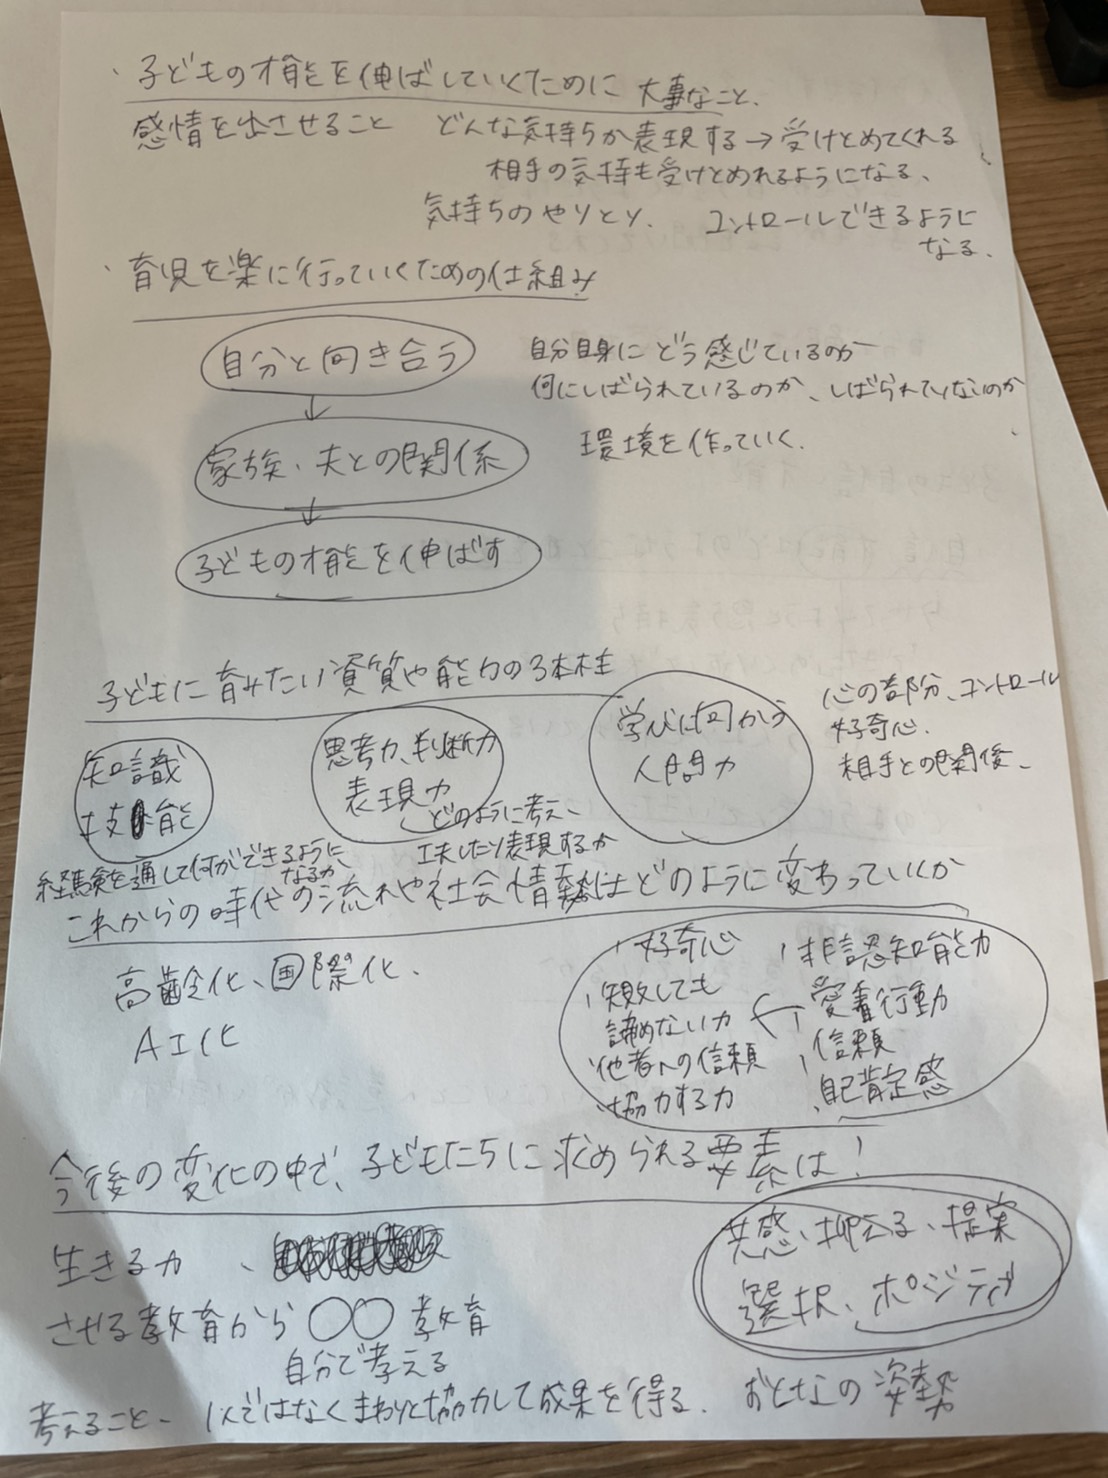 ・子どもの才能を伸ばしていくために 大事なこと、
感情を出させること どんな気持ちか表現する→受けとめてくれる
相手の気持も受けとめれるようになる、
気持ちのやりとり、 コントロールできるように
なる、
・育児を楽に行っていくための仕組み
自分と向き合う
自分自身にどう感じているのか
何にしばられているのか、しばられていないのか
↓
家族、夫との関係
環境を作っていく、
↓
子どもの才能を伸ばす
子どもに育みたい資質や能力の3本柱
知識
技能
経験を通して何ができるように
なるか
思考力、判断力
表現力
どのように考え、
工夫したり表現するか
学びに向かう
人間力
心の部分、コントロール
好奇心、
相手との関係、
これからの時代の流れや社会情勢はどのように変わっていくか
高齢化、国際化、
AI化
、好奇心
、失敗しても
諦めない力
、他者への信頼
、協力する力
←
、非認知能力
、愛着行動
、信頼
、自己肯定感
今後の変化の中で、子どもたちに求められる要素は!
生きる力 、
共感、抑える、提案
選択、ポジティブ
させる教育から〇〇教育
自分で考える
考えること、 1人ではなくまわりと協力して成果を得る、 おとなの姿勢